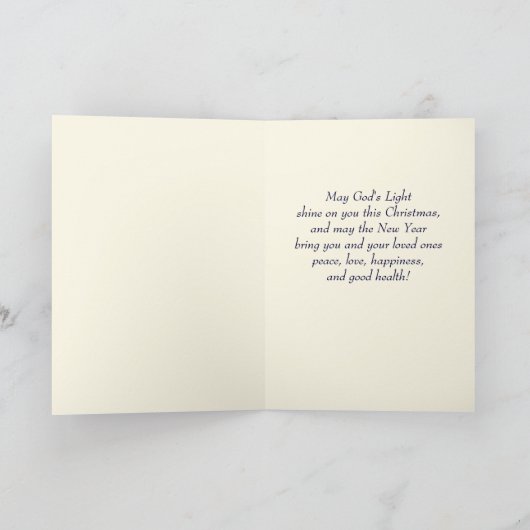 May God's Light
shine on you this Christmas,
and may the New Year
bring you and your loved ones
peace, love, happiness,
and good health!